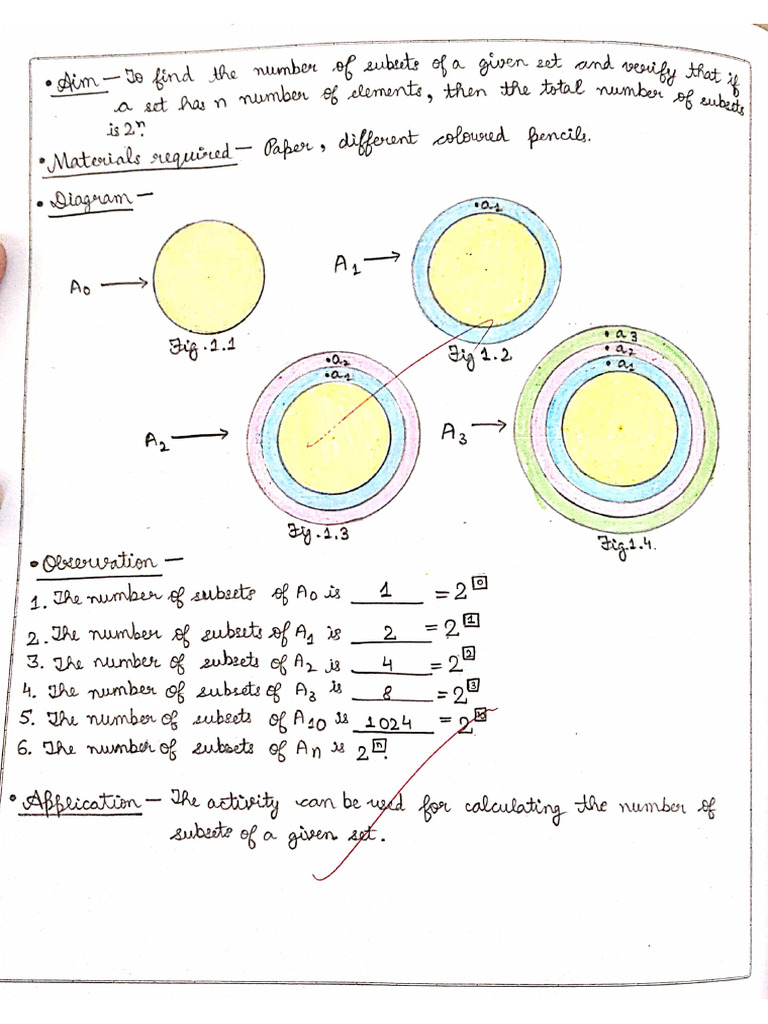 • Aim — To find the number of subsets of a given set and verify that if
a set has n number of elements, then the total number of subsets
is 2ⁿ.
• Materials required — Paper, different coloured pencils.
• Diagram —
A₀ →
Fig. 1.1
A₁ →
•a₁
Fig 1.2
A₂ →
•a₂
•a₁
Fig. 1.3
A₃ →
•a₃
•a₂
•a₁
Fig. 1.4.
• Observation —
1. The number of subsets of A₀ is 1 = 2⁰
2. The number of subsets of A₁ is 2 = 2¹
3. The number of subsets of A₂ is 4 = 2²
4. The number of subsets of A₃ is 8 = 2³
5. The number of subsets of A₁₀ is 1024 = 2
6. The number of subsets of An is 2ⁿ.
• Application — The activity can be used for calculating the number of
subsets of a given set.